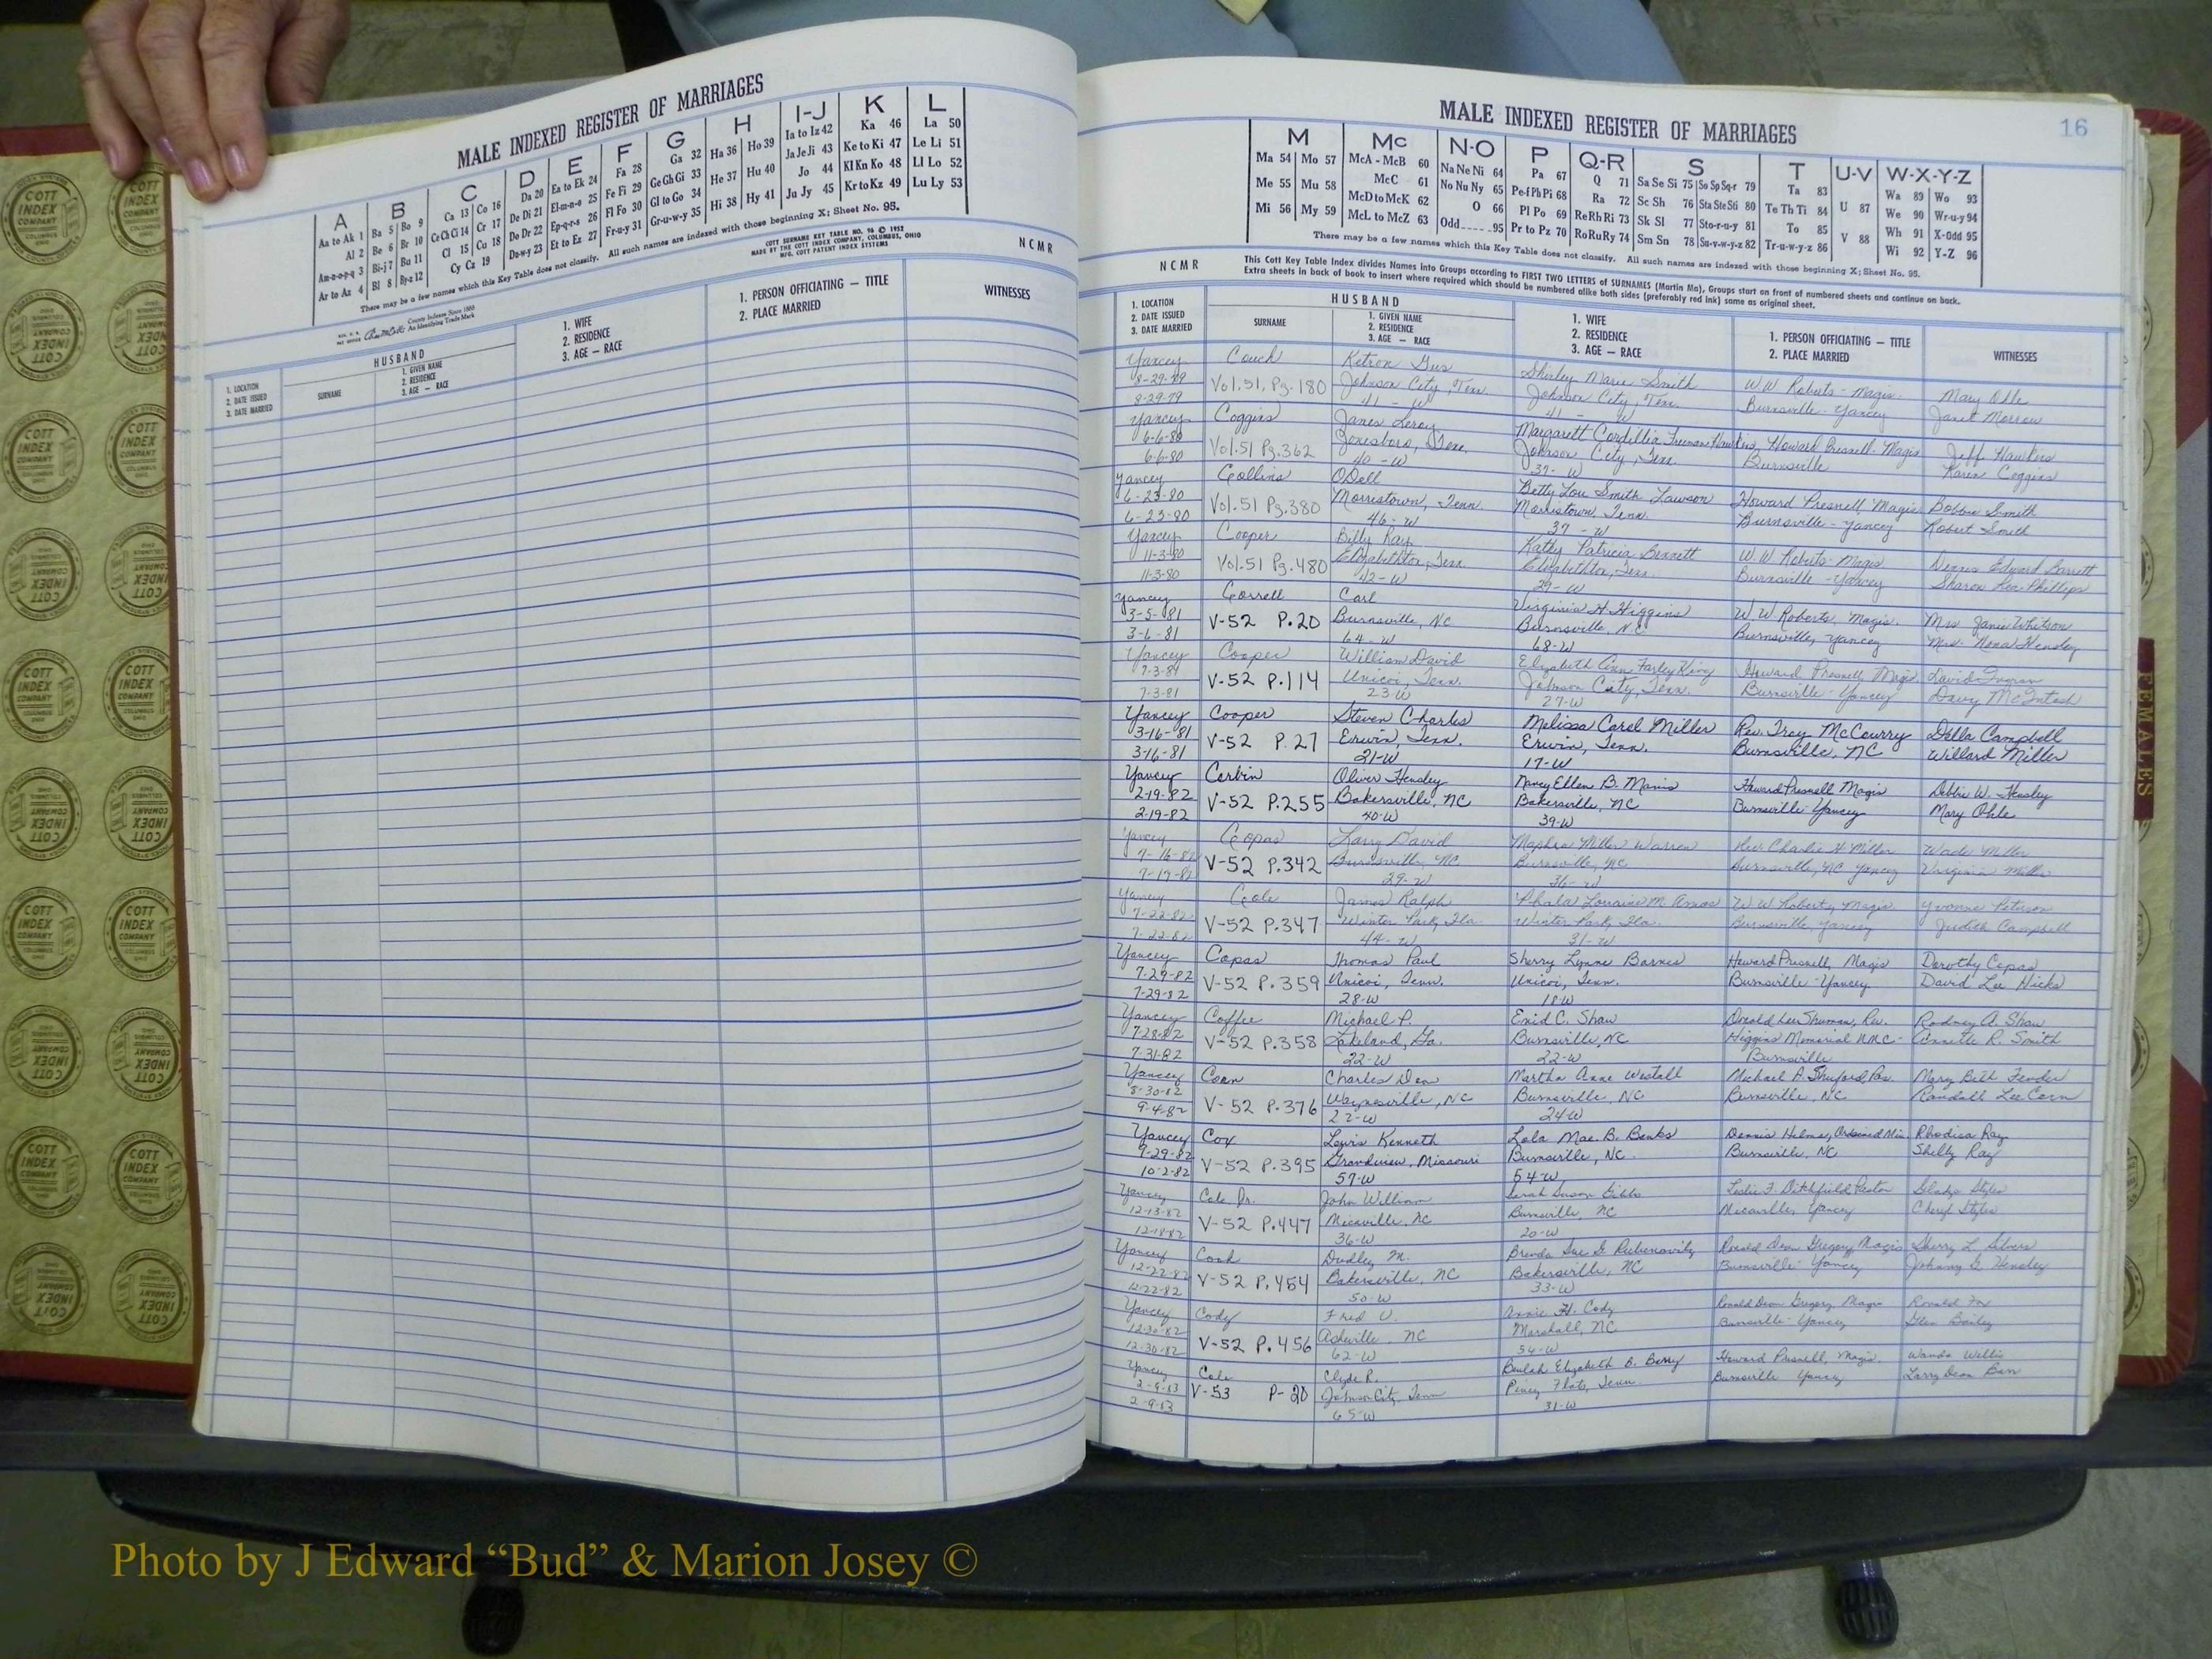 MALE INDEXED REGISTER OF MARRIAGES
A B C D E F G H I-J K L
Aa to Ak 1 Ba 5 Bo 9 Ca 13 Co 16 Da 20 Ea to Ek 24 Fa 28 Ga 32 Ha 36 Ho 39 Ia to Iz 42 Ka 46 La 50
Al 2 Be 6 Br 10 Ce Ch Ci 14 Cr 17 De Di 21 El-m-n-o 25 Fe Fi 29 Ge Gh Gi 33 He 37 Hu 40 Ja Je Ji 43 Ke to Ki 47 Le Li 51
Am-n-o-p-q 3 Bi-j 7 Bu 11 Cl 15 Cu 18 Do Dr 22 Ep-q-r-s 26 Fl Fo 30 Gl to Go 34 Hi 38 Hy 41 Jo 44 Kl Kn Ko 48 Ll Lo 52
Ar to Az 4 Bl 8 By-z 12 Cy Cz 19 Du-w-y 23 Et to Ez 27 Fr-u-y 31 Gr-u-w-y 35 Ju Jy 45 Kr to Kz 49 Lu Ly 53
There may be a few names which this Key Table does not classify. All such names are indexed with those beginning X; Sheet No. 95.
COTT SURNAME KEY TABLE NO. 96 © 1952
MADE BY THE COTT INDEX COMPANY, COLUMBUS, OHIO
MFG. COTT PATENT INDEX SYSTEMS
NCMR
County Indexes Since 1888
An Identifying Trade Mark
HUSBAND
1. LOCATION
2. DATE ISSUED
3. DATE MARRIED
SURNAME
1. GIVEN NAME
2. RESIDENCE
3. AGE — RACE
1. WIFE
2. RESIDENCE
3. AGE — RACE
1. PERSON OFFICIATING — TITLE
2. PLACE MARRIED
WITNESSES
MALE INDEXED REGISTER OF MARRIAGES
16
M Mc N-O P Q-R S T U-V W-X-Y-Z
Ma 54 Mo 57 McA - McB 60 Na Ne Ni 64 Pa 67 Q 71 Sa Se Si 75 So Sp Sq-r 79 Ta 83 U 87 Wa 89 Wo 93
Me 55 Mu 58 McC 61 No Nu Ny 65 Pe-f Ph Pi 68 Ra 72 Sc Sh 76 Sta Ste Sti 80 Te Th Ti 84 We 90 Wr-u-y 94
Mi 56 My 59 McD to McK 62 O 66 Pl Po 69 Re Rh Ri 73 Sk Sl 77 Sto-r-u-y 81 To 85 V 88 Wh 91 X-Odd 95
McL to McZ 63 Odd 95 Pr to Pz 70 Ro Ru Ry 74 Sm Sn 78 Su-v-w-y-z 82 Tr-u-w-y-z 86 Wi 92 Y-Z 96
There may be a few names which this Key Table does not classify. All such names are indexed with those beginning X; Sheet No. 95.
NCMR
This Cott Key Table Index divides Names into Groups according to FIRST TWO LETTERS of SURNAMES (Martin Ma), Groups start on front of numbered sheets and continue on back.
Extra sheets in back of book to insert where required which should be numbered alike both sides (preferably red ink) same as original sheet.
HUSBAND
1. LOCATION
2. DATE ISSUED
3. DATE MARRIED
SURNAME
1. GIVEN NAME
2. RESIDENCE
3. AGE — RACE
1. WIFE
2. RESIDENCE
3. AGE — RACE
1. PERSON OFFICIATING — TITLE
2. PLACE MARRIED
WITNESSES
Yancey Couch Ketron Gus Shirley Marie Smith W.W. Roberts - Magis. Mary Ohle
8-29-79 Vol.51, Pg.180 Johnson City, Tenn. Johnson City, Tenn. Burnsville - Yancey Janet Morrow
8-29-79 41 - W 41 - W
Yancey Coggins James Leroy Margarett Cordillia Freeman Hawkins Howard Presnell - Magis Jeff Hawkins
6-6-80 Vol.51 Pg.362 Jonesboro, Tenn. Johnson City, Tenn. Burnsville Karen Coggins
6-6-80 40 - W 37 - W
Yancey Collins ODell Betty Lou Smith Lawson Howard Presnell Magis Bobbie Smith
6-23-80 Vol.51 Pg.380 Morristown, Tenn. Morristown, Tenn. Burnsville - Yancey Robert Smith
6-23-80 46 - W 37 - W
Yancey Cooper Billy Ray Kathy Patricia Bennett W.W. Roberts - Magis
11-3-80 Vol.51 Pg.480 Elizabethton, Tenn. Elizabethton, Tenn. Burnsville - Yancey
11-3-80 42 - W 29 - W
Yancey Correll Carl Virginia H. Higgins W.W. Roberts, Magis. Mrs Janie Whitson
3-5-81 V-52 P.20 Burnsville, NC Burnsville, NC Burnsville, Yancey Mrs. Nena Hensley
3-6-81 64 - W 68-W
Yancey Cooper William David Elizabeth Ann Farley King Howard Presnell Magis. David Ingram
7-3-81 V-52 P.114 Unicoi, Tenn. Johnson City, Tenn. Burnsville - Yancey Davy McIntosh
7-3-81 23-W 27-W
Yancey Cooper Steven Charles Melissa Carol Miller Rev. Troy McCourry Della Campbell
3-16-81 V-52 P.27 Erwin, Tenn. Erwin, Tenn. Burnsville, NC Willard Miller
3-16-81 21-W 17-W
Yancey Corbin Oliver Hensley Nancy Ellen B. Manis Howard Presnell Magis Debbie W. Hensley
2-19-82 V-52 P.255 Bakersville, NC Bakersville, NC Burnsville - Yancey Mary Ohle
2-19-82 40-W 39-W
Yancey Copas Larry David Warren Rev Charlie H Miller Wade Miller
7-16-82 V-52 P.342 Burnsville, NC Burnsville, NC Burnsville, NC Yancey Virginia Miller
7-17-82 29-W 36-W
Yancey Cole James Ralph Phala Lorraine M. Amos W W Roberts, Magis. Yvonne Peterson
7-22-82 V-52 P.347 Winter Park, Fla. Winter Park, Fla. Burnsville, Yancey Judith Campbell
7-22-82 44-W 31-W
Yancey Copas Thomas Paul Sherry Lynne Barnes Howard Presnell, Magis Dorothy Copas
7-29-82 V-52 P.359 Unicoi, Tenn. Unicoi, Tenn. Burnsville - Yancey David Lee Hicks
7-29-82 28-W 18W
Yancey Coffee Michael P. Enid C. Shaw Donald Lee Shuman, Rev. Rodney A. Shaw
7-28-82 V-52 P.358 Lakeland, Ga. Burnsville, NC Higgins Memorial UMC - Annette R. Smith
7-31-82 22-W 22-W Burnsville
Yancey Corn Charles Dean Martha Anne Westall Michael A. Shuford, Pas. Mary Beth Fender
8-30-82 V-52 P.376 Waynesville, NC Burnsville, NC Burnsville, NC Randall Lee Corn
9-4-82 22-W 24W
Yancey Cox Lewis Kenneth Lola Mae B. Banks Dennis Helms, Ordained Min Rhodisa Ray
9-29-82 V-52 P.395 Grandview, Missouri Burnsville, NC. Burnsville, NC Shelly Ray
10-2-82 57-W 54-W
Yancey Cole Jr. John William Sarah Susan Gibbs Leslie F. Ditchfield, Pastor Gladys Styles
12-13-82 V-52 P.447 Micaville, NC Burnsville, NC Micaville, Yancey Cheryl Styles
12-18-82 36-W 20-W
Yancey Cook Dudley M. Brenda Sue G. Rubenovitz Ronald Dean Gregory, Magis Sherry L. Silvers
12-22-82 V-52 P.454 Bakersville, NC Bakersville, NC Burnsville - Yancey Johnny G. Hensley
12-22-82 50-W 33-W
Yancey Cody Fred V. Annie H. Cody Ronald Dean Gregory Magis Ronald Fox
12-30-82 V-52 P.456 Asheville, NC Marshall, NC Burnsville - Yancey Glen Bailey
12-30-82 62-W 54-W
Yancey Cole Clyde R. Beulah Elizabeth B. Berry Howard Presnell, Magis. Wanda Willis
2-9-83 V-53 P-20 Johnson City, Tenn Piney Flats, Tenn Burnsville Yancey Larry Dean
2-9-83 65-W 31-W
FEMALES
COTT INDEX COMPANY
Photo by J Edward “Bud” & Marion Josey ©